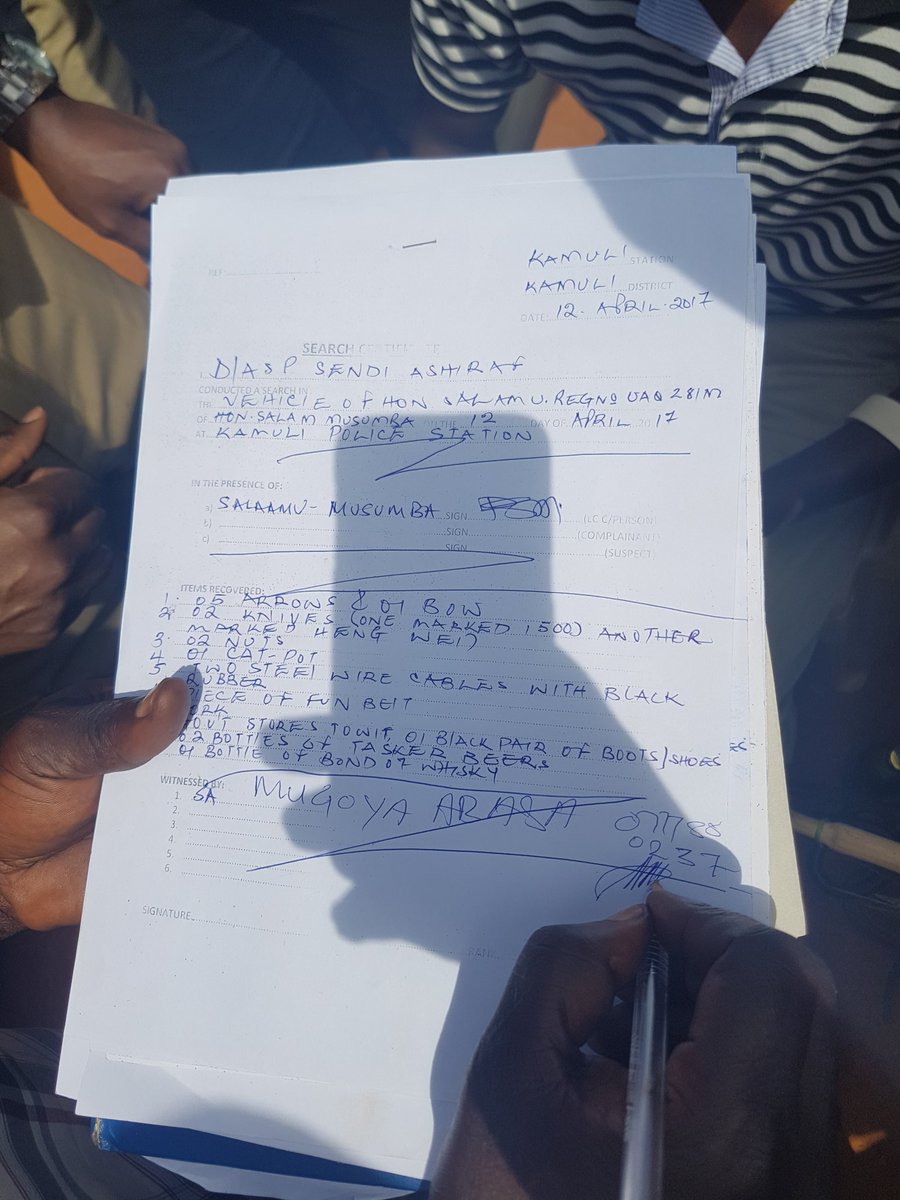 REF:
KAMULI STATION
KAMULI DISTRICT
DATE: 12. APRIL. 2017
SEARCH CERTIFICATE
I D/ASP SENDI ASHIRAF
CONDUCTED A SEARCH IN
THE VEHICLE OF HON SALAMU. REGNO UAQ 281M
OF HON. SALAM MUSUMBA ON THE 12 DAY OF APRIL 2017
AT KAMULI POLICE STATION
IN THE PRESENCE OF:
a) SALAAMU - MUSUMBA SIGN (LC C/PERSON)
b) SIGN (COMPLAINANT)
c) SIGN (SUSPECT)
ITEMS RECOVERED:
1. 05 ARROWS & 01 BOW
2. 02 KNIVES (ONE MARKED 1500) ANOTHER
MARKED HENG WEI)
3. 02 NUTS
4. 01 CAT-POT
5. TWO STEEL WIRE CABLES WITH BLACK
RUBBER
PIECE OF FUN BEIT
STORES TOWIT, 01 BLACK PAIR OF BOOTS/SHOES
02 BOTTLES OF TASKER BEERS
01 BOTTLE OF BOND 07 WHISKY
WITNESSED BY:
1. SA MUGOYA
2.
3.
4.
5.
6.
0237
SIGNATURE
RANK